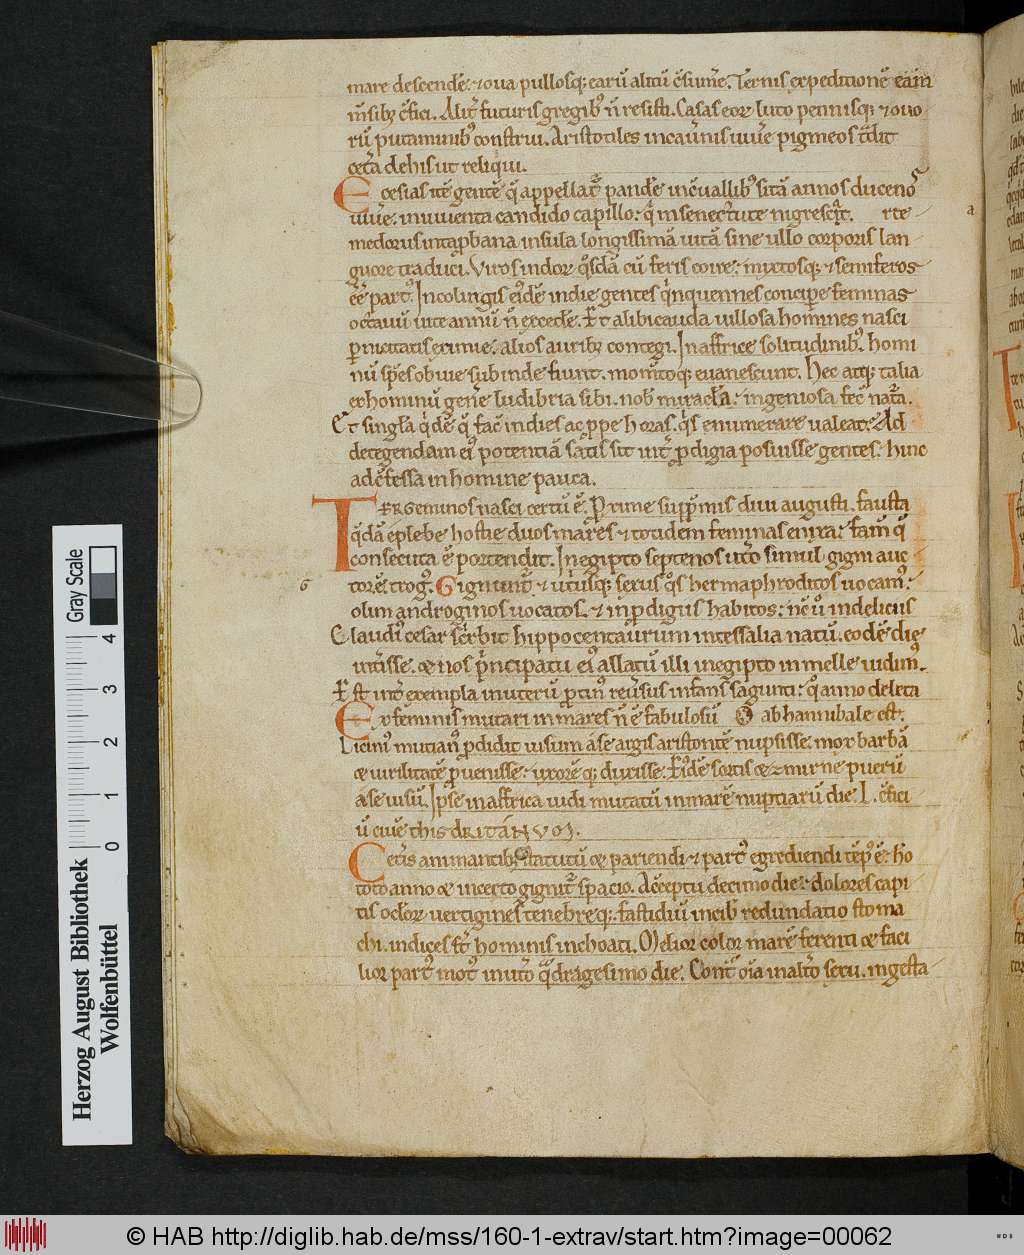 mare descendē. ⁊ oua pullosq; earū alitū ꝯsum̄e. Ternis expeditionē eam
m̄sibꝫ ꝯfici. Alit̄ futuris gregibꝰ n̄ resisti. Casas eoꝝ luto pennisq; ⁊ ouo
rū putaminibꝰ construi. Aristotiles in cauīnis uiuere pigmeos t̄dit
cet̄a de his ut reliqui.
Ecesias itē gentē q̄ appellat᷑ pandē in ꝯuallibꝰ sitā annos ducenoˢ
uiuē. in iuuenta candido capillo. q̄ in senectute nigrescat. rte
medorus in tapbana insula longissimā uitā sine ullo corporis lan
guore traduci. Viros indoꝝ q̊sdā cū feris coire. mixtosq; ⁊ semiferos
eē part᷒. In colingis eidē indie gentes q̇nquennes concipe feminas
octauū uite annū n̄ excedē. Et alibi cauda uillosa homines nasci
ꝑnicitatis eximie. alios auribꝫ contegi. In affrice solitudinibꝰ. homi
nū sp̄es obuie subinde fiunt. mom̄toq; euanescunt. Hec atq; talia
ex hominū gen̄e ludibria sibi. nob̄ miracl̄a. ingeniosa fec̄ nat᷑a.
Et singl̄a q̇dē q̄ fac̄ in dies ac ꝓpe horas. q̇s enumerare ualeat. Ad
detegendam ei᷒ potentiā satis sit int̄ ꝓdigia posuisse gentes. hinc
ad ꝯfessa in homine pauca.
TERGeminos nasci certū ē. Prime supp̄mis diui augusti. fausta
q̄dā e plebe hostie duos mares ⁊ totidem feminas enixa. fam̄ q̄
consecuta ē portendit. In egipto septenos ut̄o simul gigni auc
torē trog᷒. Gignunt᷑ ⁊ ut̄usq; sexus q̊s hermaphroditos uocam᷒.
6
a
olim androginos uocatos. ⁊ in ꝓdigiis habitos. nc̄ ů in deliciis
Claudi᷒ cesar sc̄rbit hippocentaurum in tessalia natū. eodē die
int̄isse. & nos p̄ncipatu ei᷒ allatū illi in egipto in melle uidim᷒.
Est int̄ exempla in uterū ꝓtin᷒ reūsus infans sagunti. q̊ anno deleta
Ex feminis mutari in mares n̄ ē fabulosū ab hannibale est.
Licini᷒ mutian᷒ ꝓdidit uisum a se argis aristontē nupsisse. mox barbā
& uirilitatē ꝓuenisse. uxorē q; duxisse. Ei᷒dē sortis & zmirne puerū
a se uisū. Ipse in affrica uidi mutatū in marē nuptiarū die. L. ꝯfici
ū ciuē thisdRITANUM.
Cet̄is animantibꝫ statutū & pariendi ⁊ part᷒ egrediendi tēp᷒ ē. hō
toto anno & incerto gignit᷑ spacio. A ꝯceptu decimo die. dolores capi
tis ocl̄oꝝ uertigines tenebreq;. fastidiū in cib̄ redundatio stoma
chi. indices st̄ hominis inchoati. Melior color marē ferenti & faci
lior part᷒. mot᷒ in ut̄o q̄dragesimo die. Cont̄ oīa in alt̄o sexu. ingesta
Herzog August Bibliothek
Wolfenbüttel
Gray Scale
0 1 2 3 4
© HAB http://diglib.hab.de/mss/160-1-extrav/start.htm?image=00062